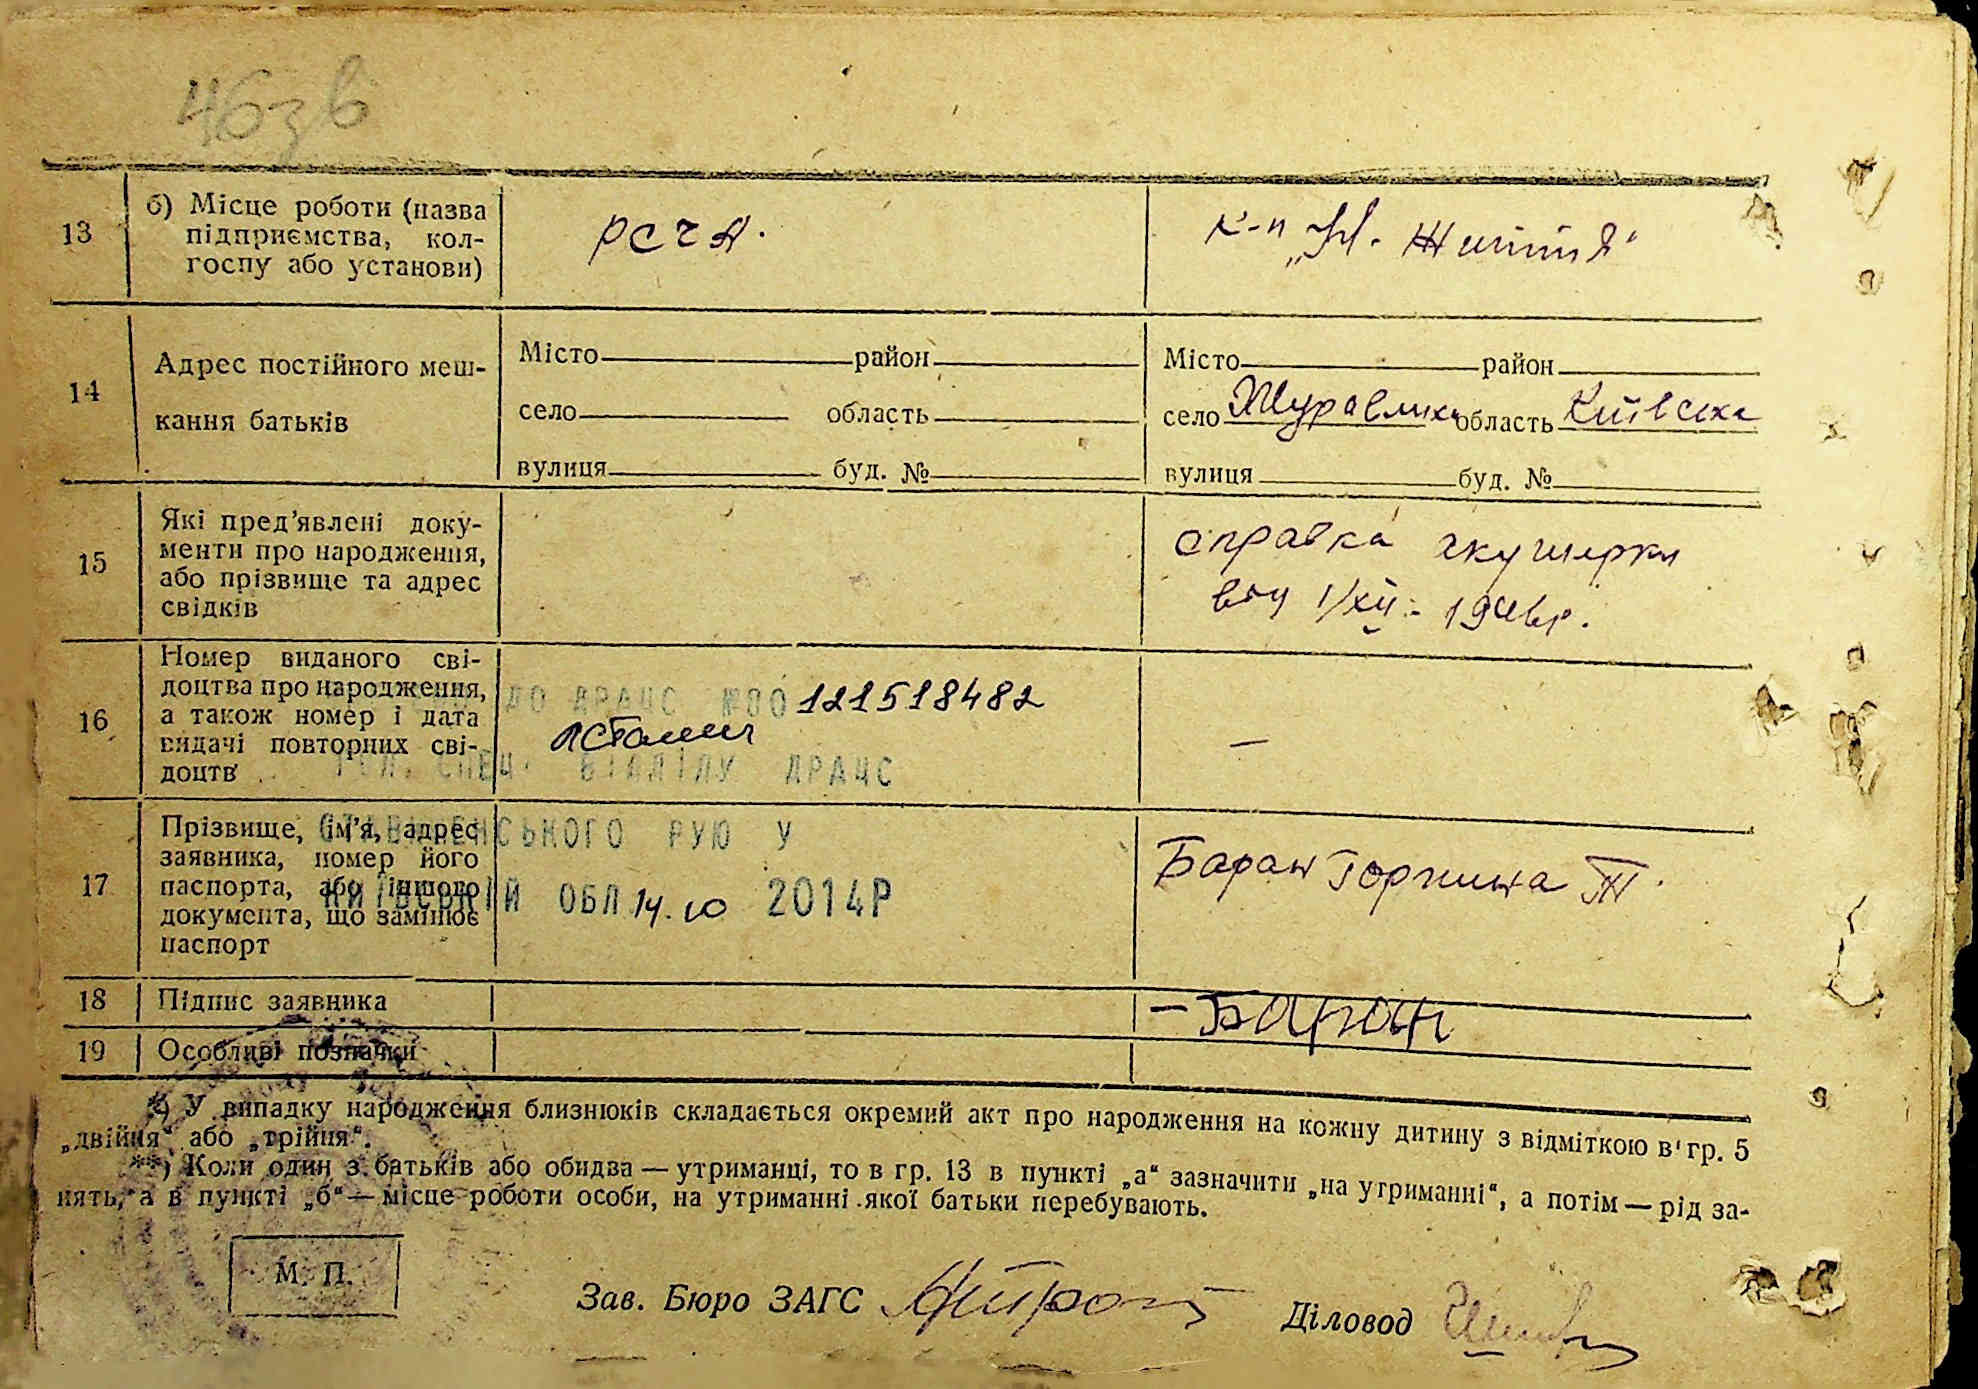 46зв
13
б) Місце роботи (назва
підприємства, кол-
госпу або установи)
РСЧА.
к-п „Н. Життя"
14
Адрес постійного меш-
кання батьків
Місто район
село область
вулиця буд. №
Місто район
село Журавлиха область Київська
вулиця буд. №
15
Які пред'явлені доку-
менти про народження,
або прізвище та адрес
свідків
справка акушерки
від 1/XII - 194 р.
16
Номер виданого сві-
доцтва про народження,
а також номер і дата
видачі повторних сві-
доцтв
ДО ДРАЦС №00 121518482
ГОЛ. СПЕЦ. ВІДДІЛУ ДРАЦС
—
17
Прізвище, ім'я, адрес
заявника, номер його
паспорта, або іншого
документа, що замінює
паспорт
СТАВИЩЕНСЬКОГО РУЮ У
КИЇВСЬКІЙ ОБЛ 14.10 2014Р
Баран Горпина Т.
18
Підпис заявника
— Баран
19
Особливі позначки
*) У випадку народження близнюків складається окремий акт про народження на кожну дитину з відміткою в гр. 5
„двійня" або „трійня".
**) Коли один з батьків або обидва — утриманці, то в гр. 13 в пункті „а" зазначити „на утриманні", а потім — рід за-
нять, а в пункті „б" — місце роботи особи, на утриманні якої батьки перебувають.
М. П.
Зав. Бюро ЗАГС
Діловод